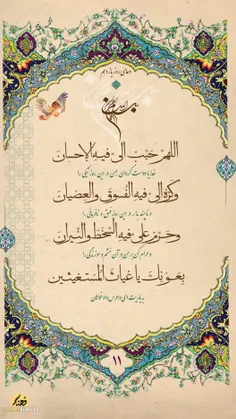 دعای روز یازدهم
اللهم حبب الی فیه الإحسان
خدایا دوست گردان بمن در این روز نیکی را
وکره الی فیه الفسوق والعصیان
و ناپسند بدار در این روز فسق و نافرمانی را
وحرم علی فیه السخط والنیران
و حرام کن بر من در آن خشم و سوزندگی را
بعونک یا غیاث المستغیثین
به یاریت ای دادرس دادخواهان
۱۱